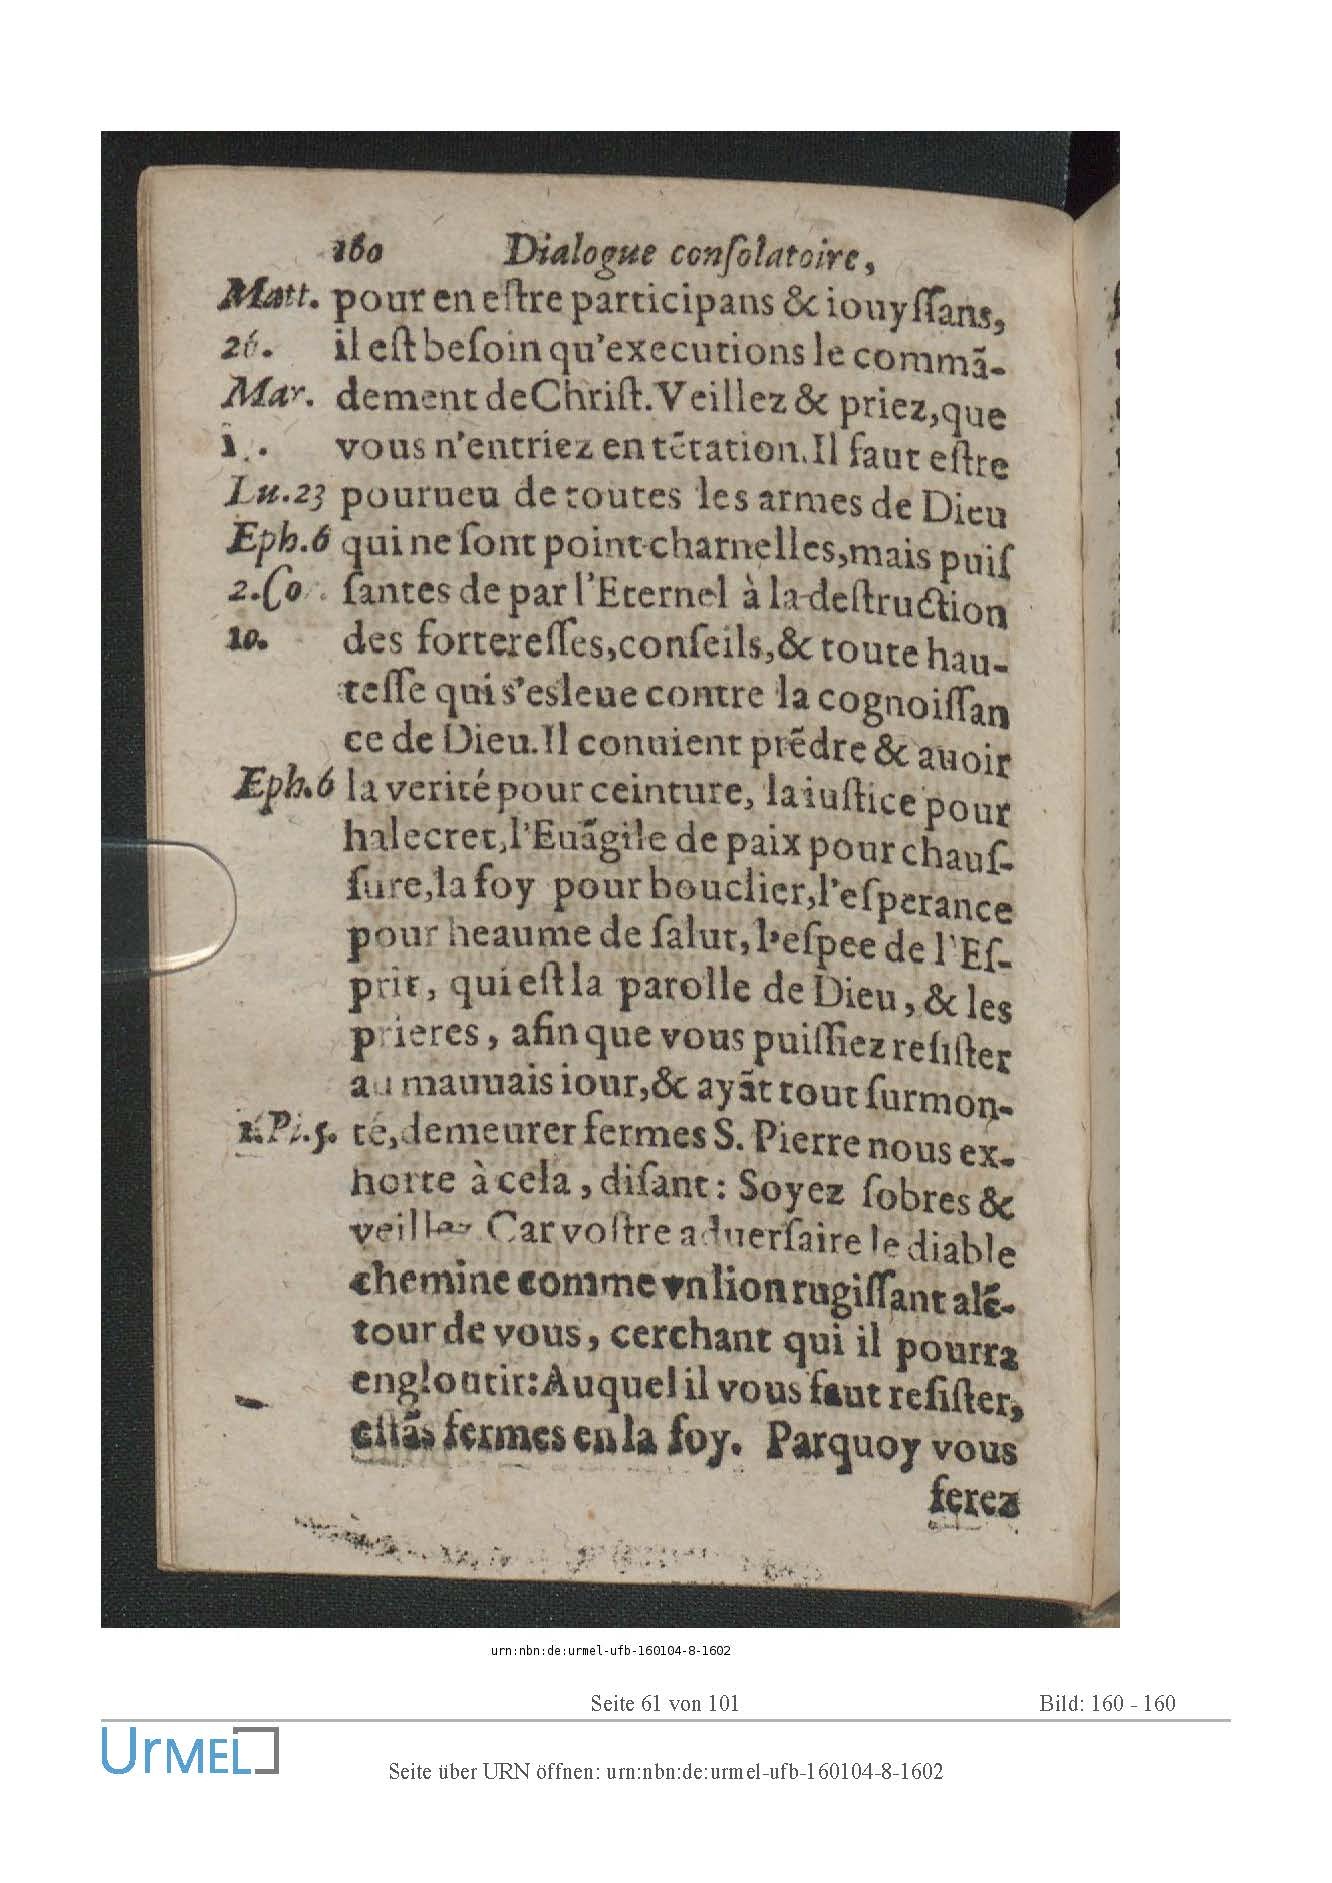 160 Dialogue conſolatoire,
Matt. pour en eſtre participans & iouyſſans,
26. il eſt beſoin qu'executions le commā-
Mar. dement de Chriſt. Veillez & priez, que
vous n'entriez en tētation. Il faut eſtre
Lu. 23 pourueu de toutes les armes de Dieu
Eph. 6 qui ne ſont point charnelles, mais puiſ
2. Co. ſantes de par l'Eternel à la deſtruction
10. des fortereſſes, conſeils, & toute hau-
teſſe qui s'esleue contre la cognoiſſan
ce de Dieu. Il conuient prēdre & auoir
Eph. 6 la verité pour ceinture, la iuſtice pour
halecret, l'Euāgile de paix pour chauſ-
ſure, la foy pour bouclier, l'eſperance
pour heaume de ſalut, l'eſpee de l'Eſ-
prit, qui eſt la parolle de Dieu, & les
prieres, afin que vous puiſſiez reſiſter
au mauuais iour, & ayāt tout ſurmon-
1. Pi. 5. té, demeurer fermes S. Pierre nous ex-
horte à cela, diſant: Soyez ſobres &
veillez Car voſtre aduerſaire le diable
chemine comme vn lion rugiſſant alē-
tour de vous, cerchant qui il pourra
engloutir: Auquel il vous faut reſiſter,
eſtās fermes en la foy. Parquoy vous
ferez
urn:nbn:de:urmel-ufb-160104-8-1602
Seite 61 von 101 Bild: 160 - 160
UrMEL
Seite über URN öffnen: urn:nbn:de:urmel-ufb-160104-8-1602